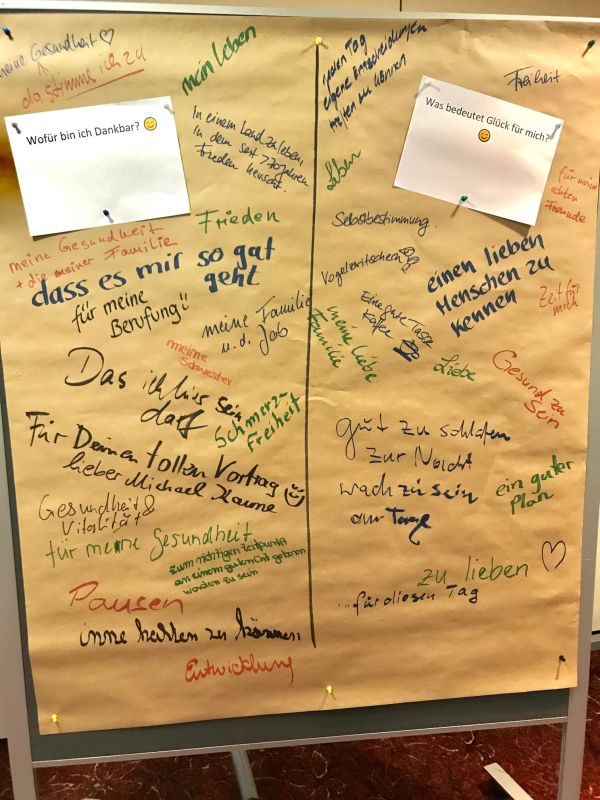 meine Gesundheit ♡
da stimme ich zu
mein Leben
Wofür bin ich Dankbar? 😊
In einem Land zu leben,
In dem seit 770 Jahren
Frieden herrscht.
Frieden
meine Gesundheit
+ die meiner Familie
dass es mir so gat
geht
für meine
Berufung
meine Familie
u. d. Job
meine
Schwester
Das ich hier sein
darf
Schmerz-
Freiheit
Für Deinen tollen Vortrag
lieber Michael
Gesundheit &
Vitalität
für meine Gesundheit
zum richtigen Zeitpunkt
an einem guten Ort geboren
worden zu sein
Pausen
inne halten zu können
Entwicklung
jeden Tag
eigene Entscheidungen
treffen zu können
Freiheit
Was bedeutet Glück für mich?
😊
Leben
für meine
echten
Freunde
Selbstbestimmung
Vogelzwitschern
einen lieben
Menschen zu
kennen
Zeit für
mich
Eine gute Tasse
Kaffee
meine liebe
Familie
Liebe
Gesund zu
sein
gut zu schlafen
zur Nacht
wach zu sein
am Tage
ein guter
Plan
zu lieben ♡
...für diesen Tag